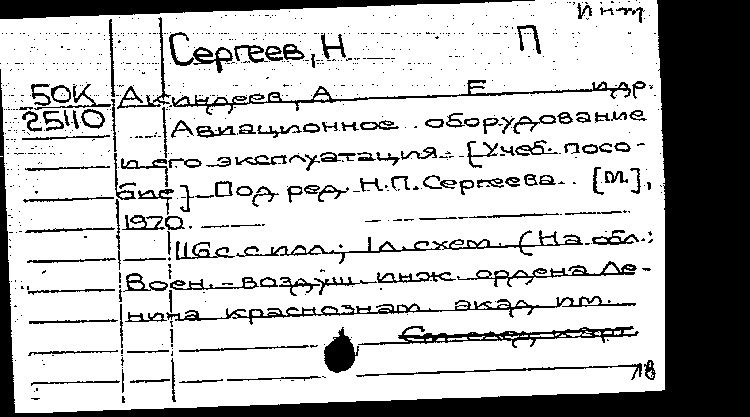 инт
Сергеев, Н П
50К Акиндеев, А Е и др.
25110 Авиационное оборудование
и его эксплуатация. [Учеб. посо-
бие] Под ред. Н.П.Сергеева. [М.],
1970.
116с.с илл.; 1л.схем. (На обл.:
Воен.-воздуш. инж. ордена Ле-
нина краснознам. акад им.
См след карт
18